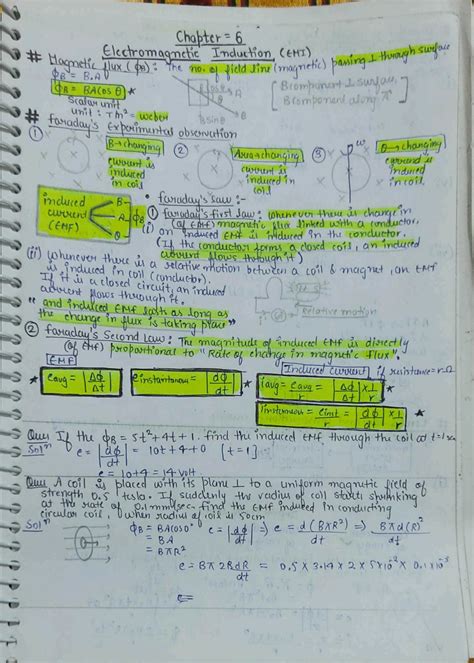 Chapter = 6
Electromagnetic Induction (EMI)
# Magnetic flux (ϕB) : The no. of field line (magnetic) passing ⊥ through surface
ϕB = B.A
ϕB = BA cos θ
Scalar unit
unit : Tm² = weber
B sin θ
[B component ⊥ surface,
B component along A]
# faraday's Experimental observation
① B → changing
current is induced in coil
② Area → changing
current is induced in coil
③ θ → changing
current is induced in coil
induced current (EMF)
B
A
θ
ϕB
faraday's law :-
① faraday's first law : whenever there is change in
(of EMI) magnetic flux linked with a conductor,
(i) an induced EMF is induced in the conductor.
(If the conductor forms a closed coil, an induced
current flows through it)
(ii) Whenever there is a relative motion between a coil & magnet, an EMF
is induced in coil (conductor).
If it is a closed circuit, an induced
current flows through it.
relative motion
"and induced EMF lasts as long as
the change in flux is taking place"
② faraday's Second Law : The magnitude of induced EMF is directly
(of EMI) proportional to "Rate of change in magnetic flux".
EMF
Induced current if resistance = r Ω
eavg = |Δϕ/Δt|
einstantaneous = |dϕ/dt|
iavg = eavg/r = |Δϕ/Δt| × 1/r
= |dϕ/dt| × 1/r
Ques If the ϕB = 5t² + 4t + 1. find the induced EMF through the coil at t=1
Solⁿ e = |dϕ/dt| = 10t + 4 + 0 [t = 1]
e = 10 + 4 = 14 volt
Ques A coil is placed with its plane ⊥ to a uniform magnetic field of
strength 0.5 tesla. If suddenly the radius of coil starts shrinking
at the rate of 0.1 mm/sec. find the EMF induced in conducting
circular coil, when radius of coil is 5cm
Solⁿ ϕB = BA cos 0° e = |dϕ/dt| ⇒ e = d(BπR²)/dt ⇒ Bπ d(R)²/dt
= BA
= BπR²
e = Bπ 2R dR/dt = 0.5 × 3.14 × 2 × 5×10⁻² × 0.1×10⁻³
e =